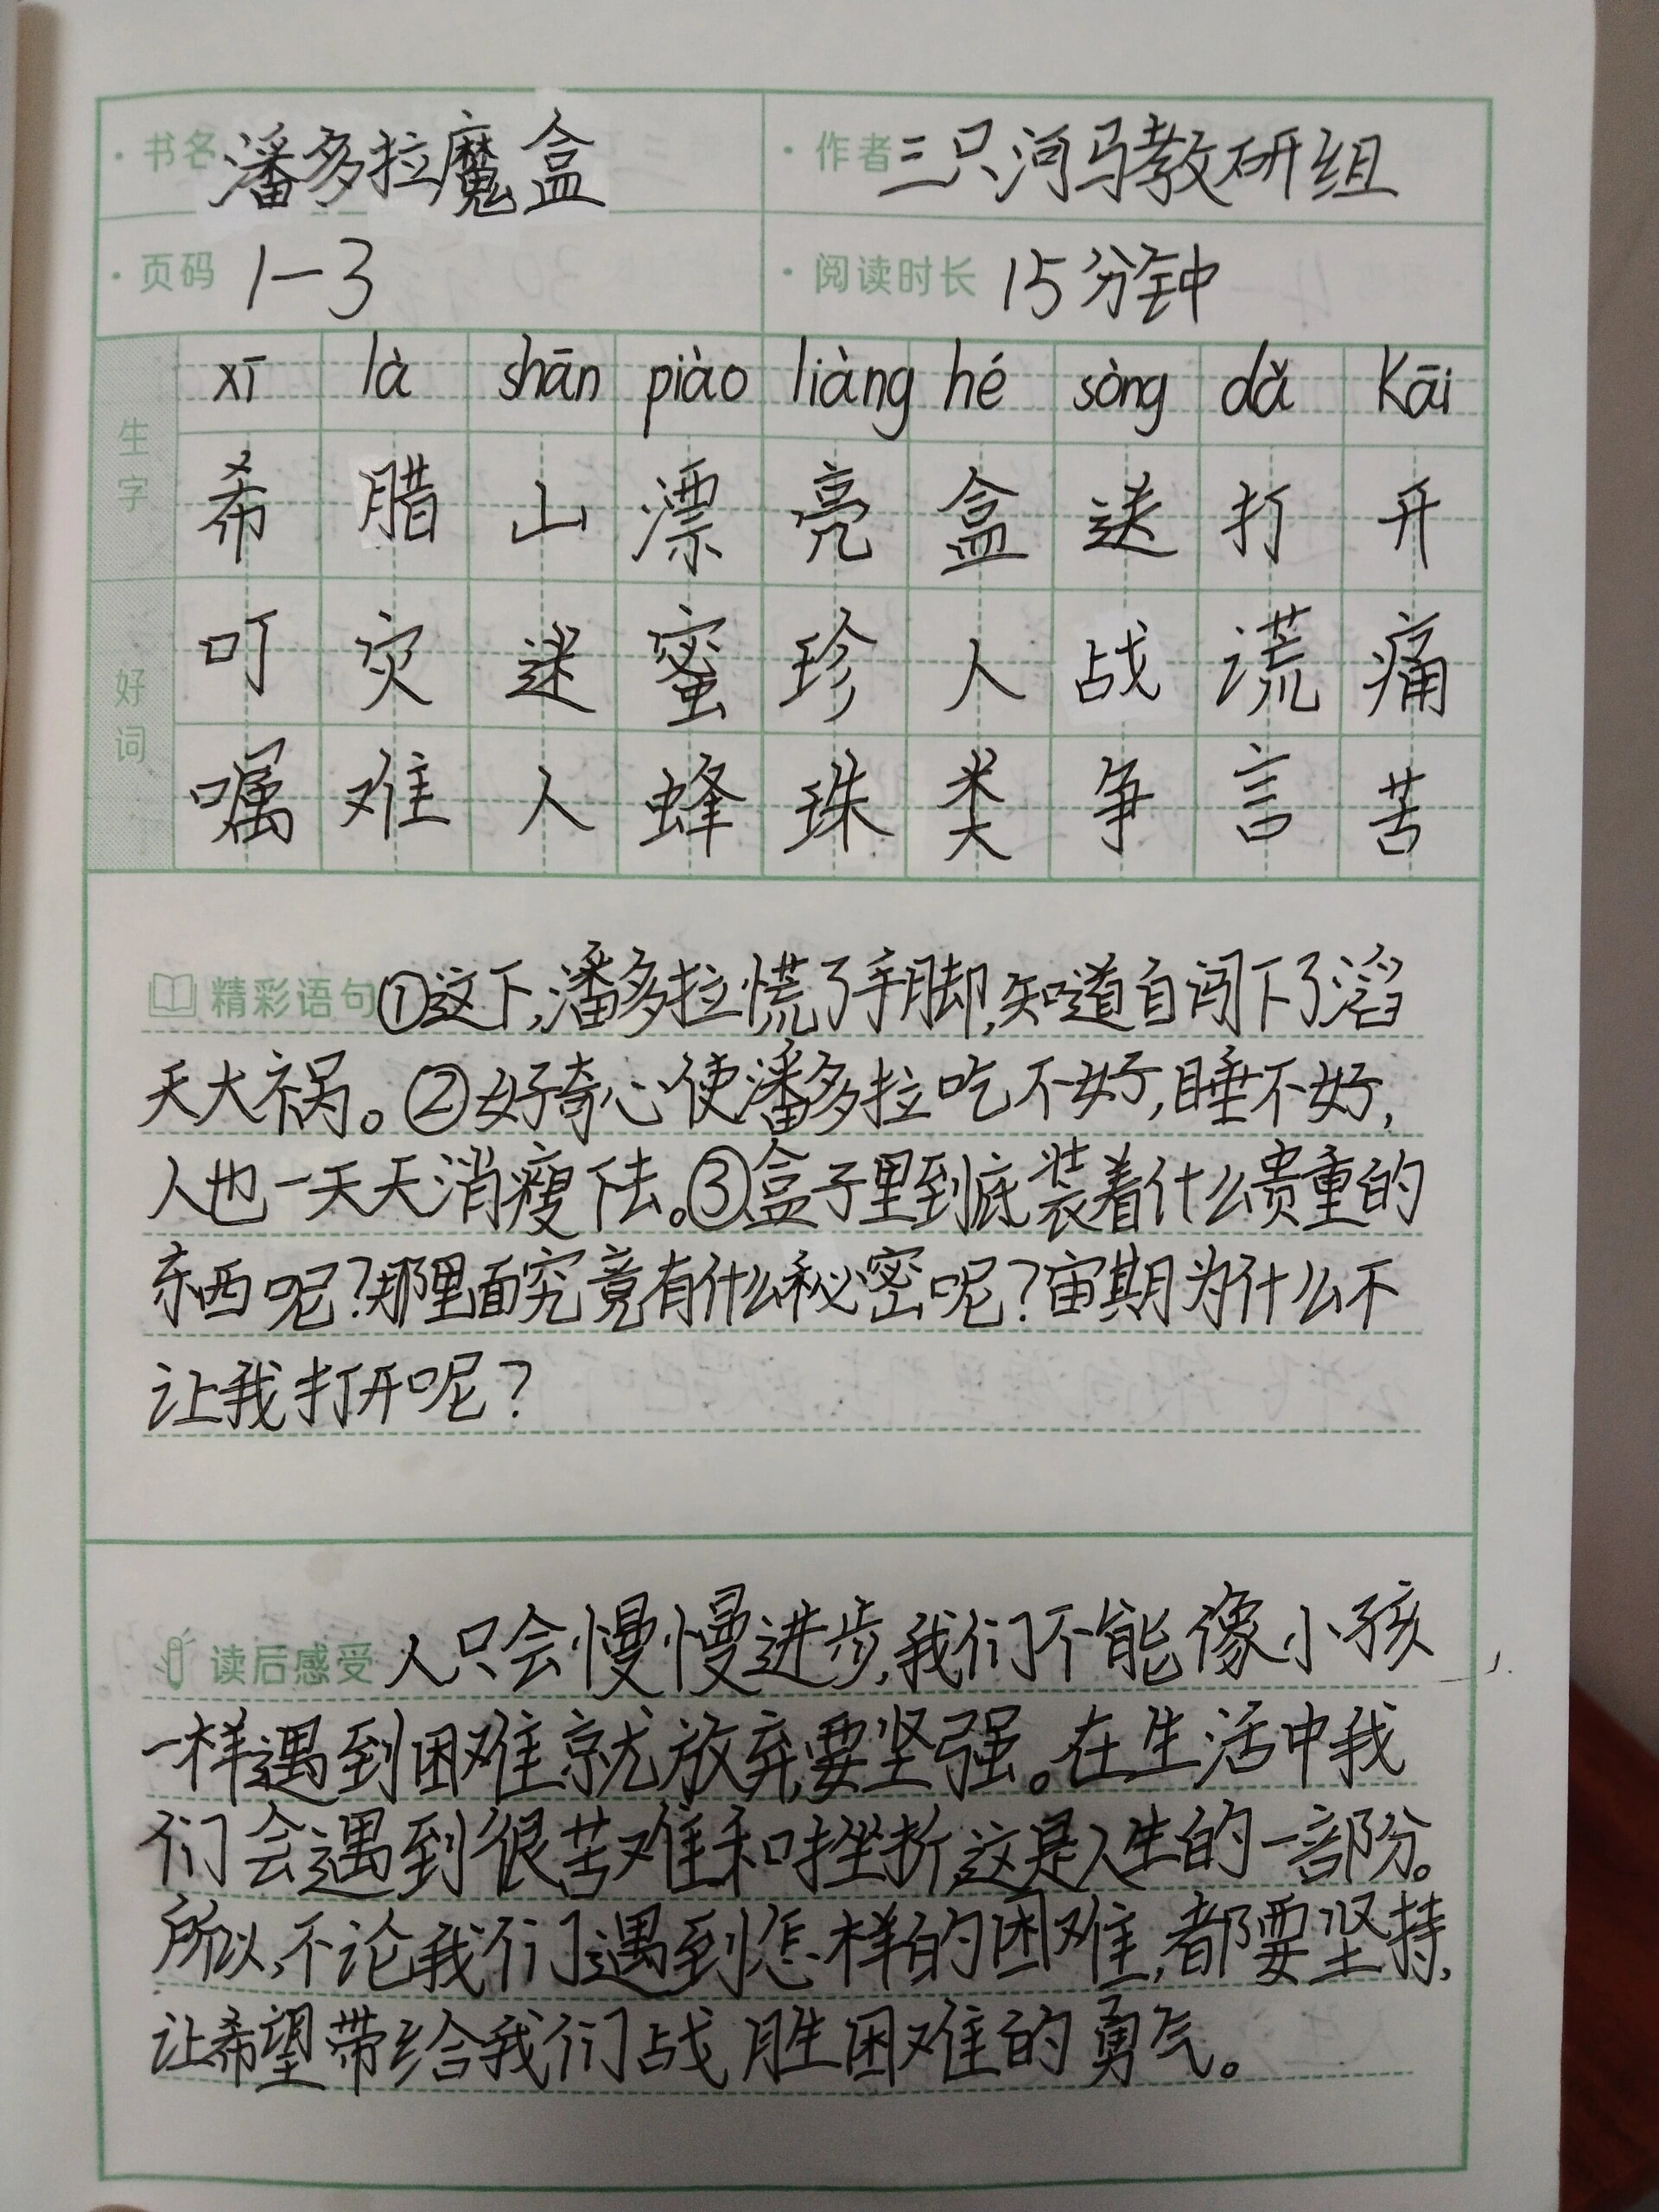 ·书名 潘多拉魔盒 ·作者 三只河马教研组
·页码 1—3 ·阅读时长 15分钟
xī là shān piào liàng hé sòng dǎ Kāi
生字 希 腊 山 漂 亮 盒 送 打 开
好词 叮 灾 迷 蜜 珍 人 战 谎 痛
嘱 难 人 蜂 珠 类 争 言 苦
精彩语句 ①这下,潘多拉慌了手脚,知道自闯下了滔
天大祸。②好奇心使潘多拉吃不好,睡不好,
人也一天天消瘦下去。③盒子里到底装着什么贵重的
东西呢?那里面究竟有什么秘密呢?宙期为什么不
让我打开呢?
读后感受 人只会慢慢进步,我们不能像小孩
一样遇到困难就放弃,要坚强。在生活中我
们会遇到很苦难和挫折,这是人生的一部份。
所以,不论我们遇到怎样的困难,都要坚持,
让希望带给我们战胜困难的勇气。